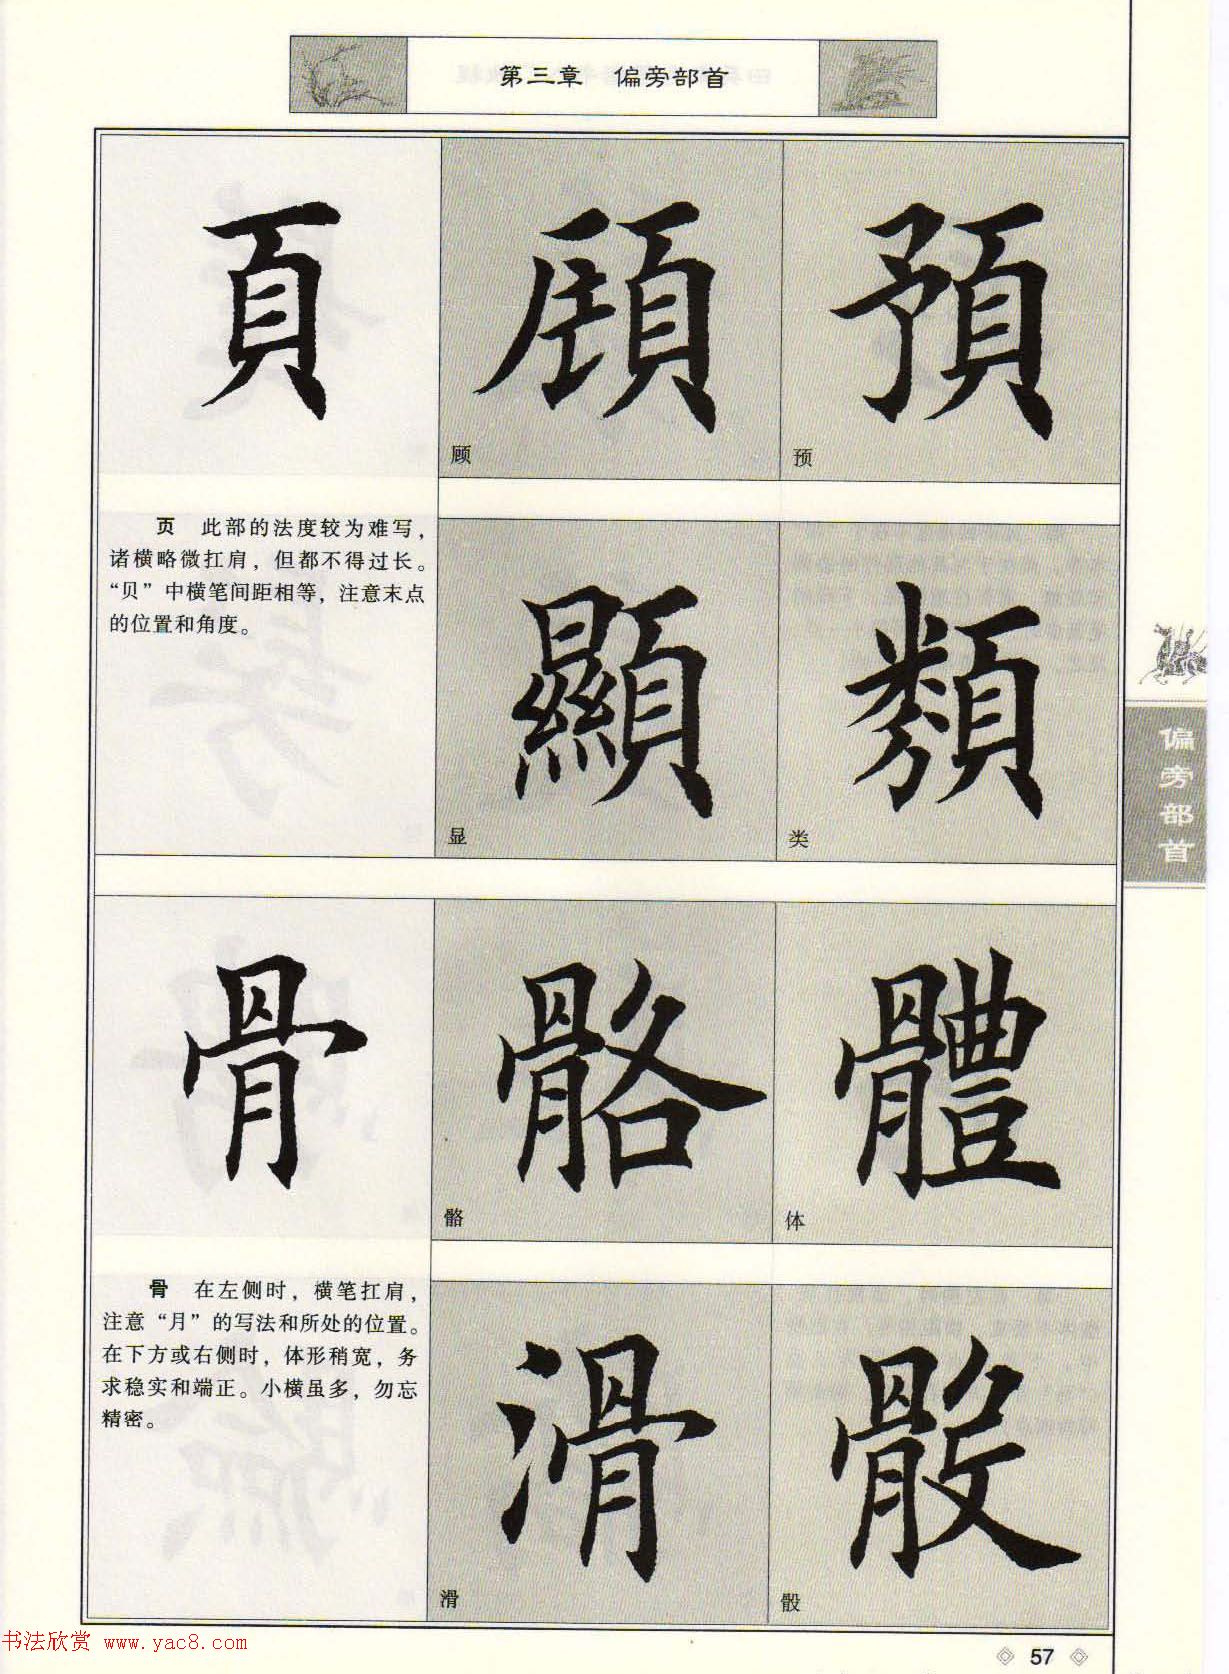 第三章 偏旁部首
頁
顧
预
顾
預
页 此部的法度较为难写，
诸横略微扛肩，但都不得过长。
“贝”中横笔间距相等，注意末点
的位置和角度。
顯
显
類
类
偏旁部首
骨
骼
骼
體
体
骨 在左侧时，横笔扛肩，
注意“月”的写法和所处的位置。
在下方或右侧时，体形稍宽，务
求稳实和端正。小横虽多，勿忘
精密。
滑
滑
骰
骰
书法欣赏 www.yac8.com
57